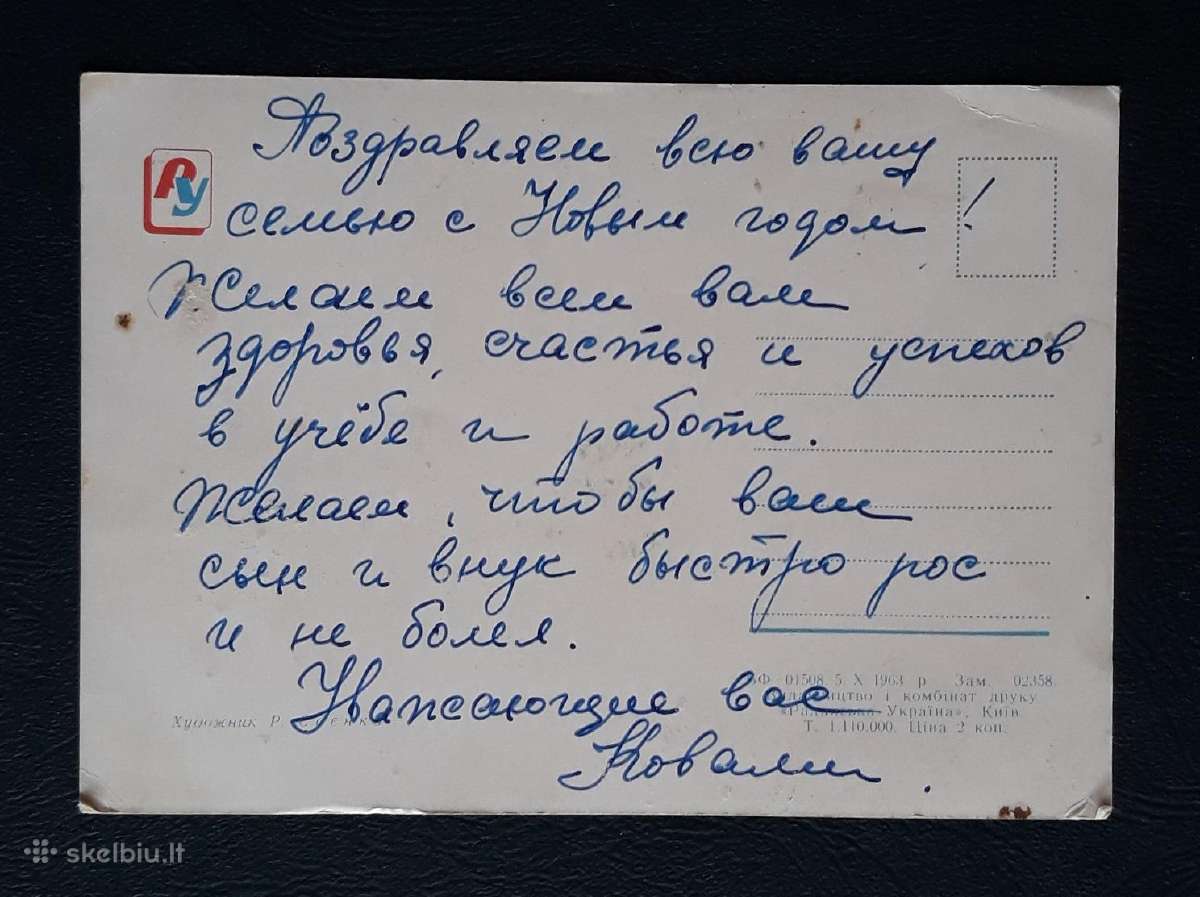 Поздравляем всю вашу
РУ
семью с Новым годом!
Желаем всем вам
здоровья, счастья и успехов
в учёбе и работе.
Желаем, чтобы ваш
сын и внук быстро рос
и не болел.
Уважающие вас
Ковали.
Художник Р.
БФ 01508 5 X 1963 р. Зам. 02358
Видавництво і комбінат друку
«Радянська Україна», Київ
Т. 1.110.000. Ціна 2 коп.
skelbiu.lt